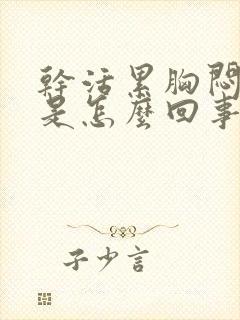 幹活累胸悶
是怎麼回事
子少言